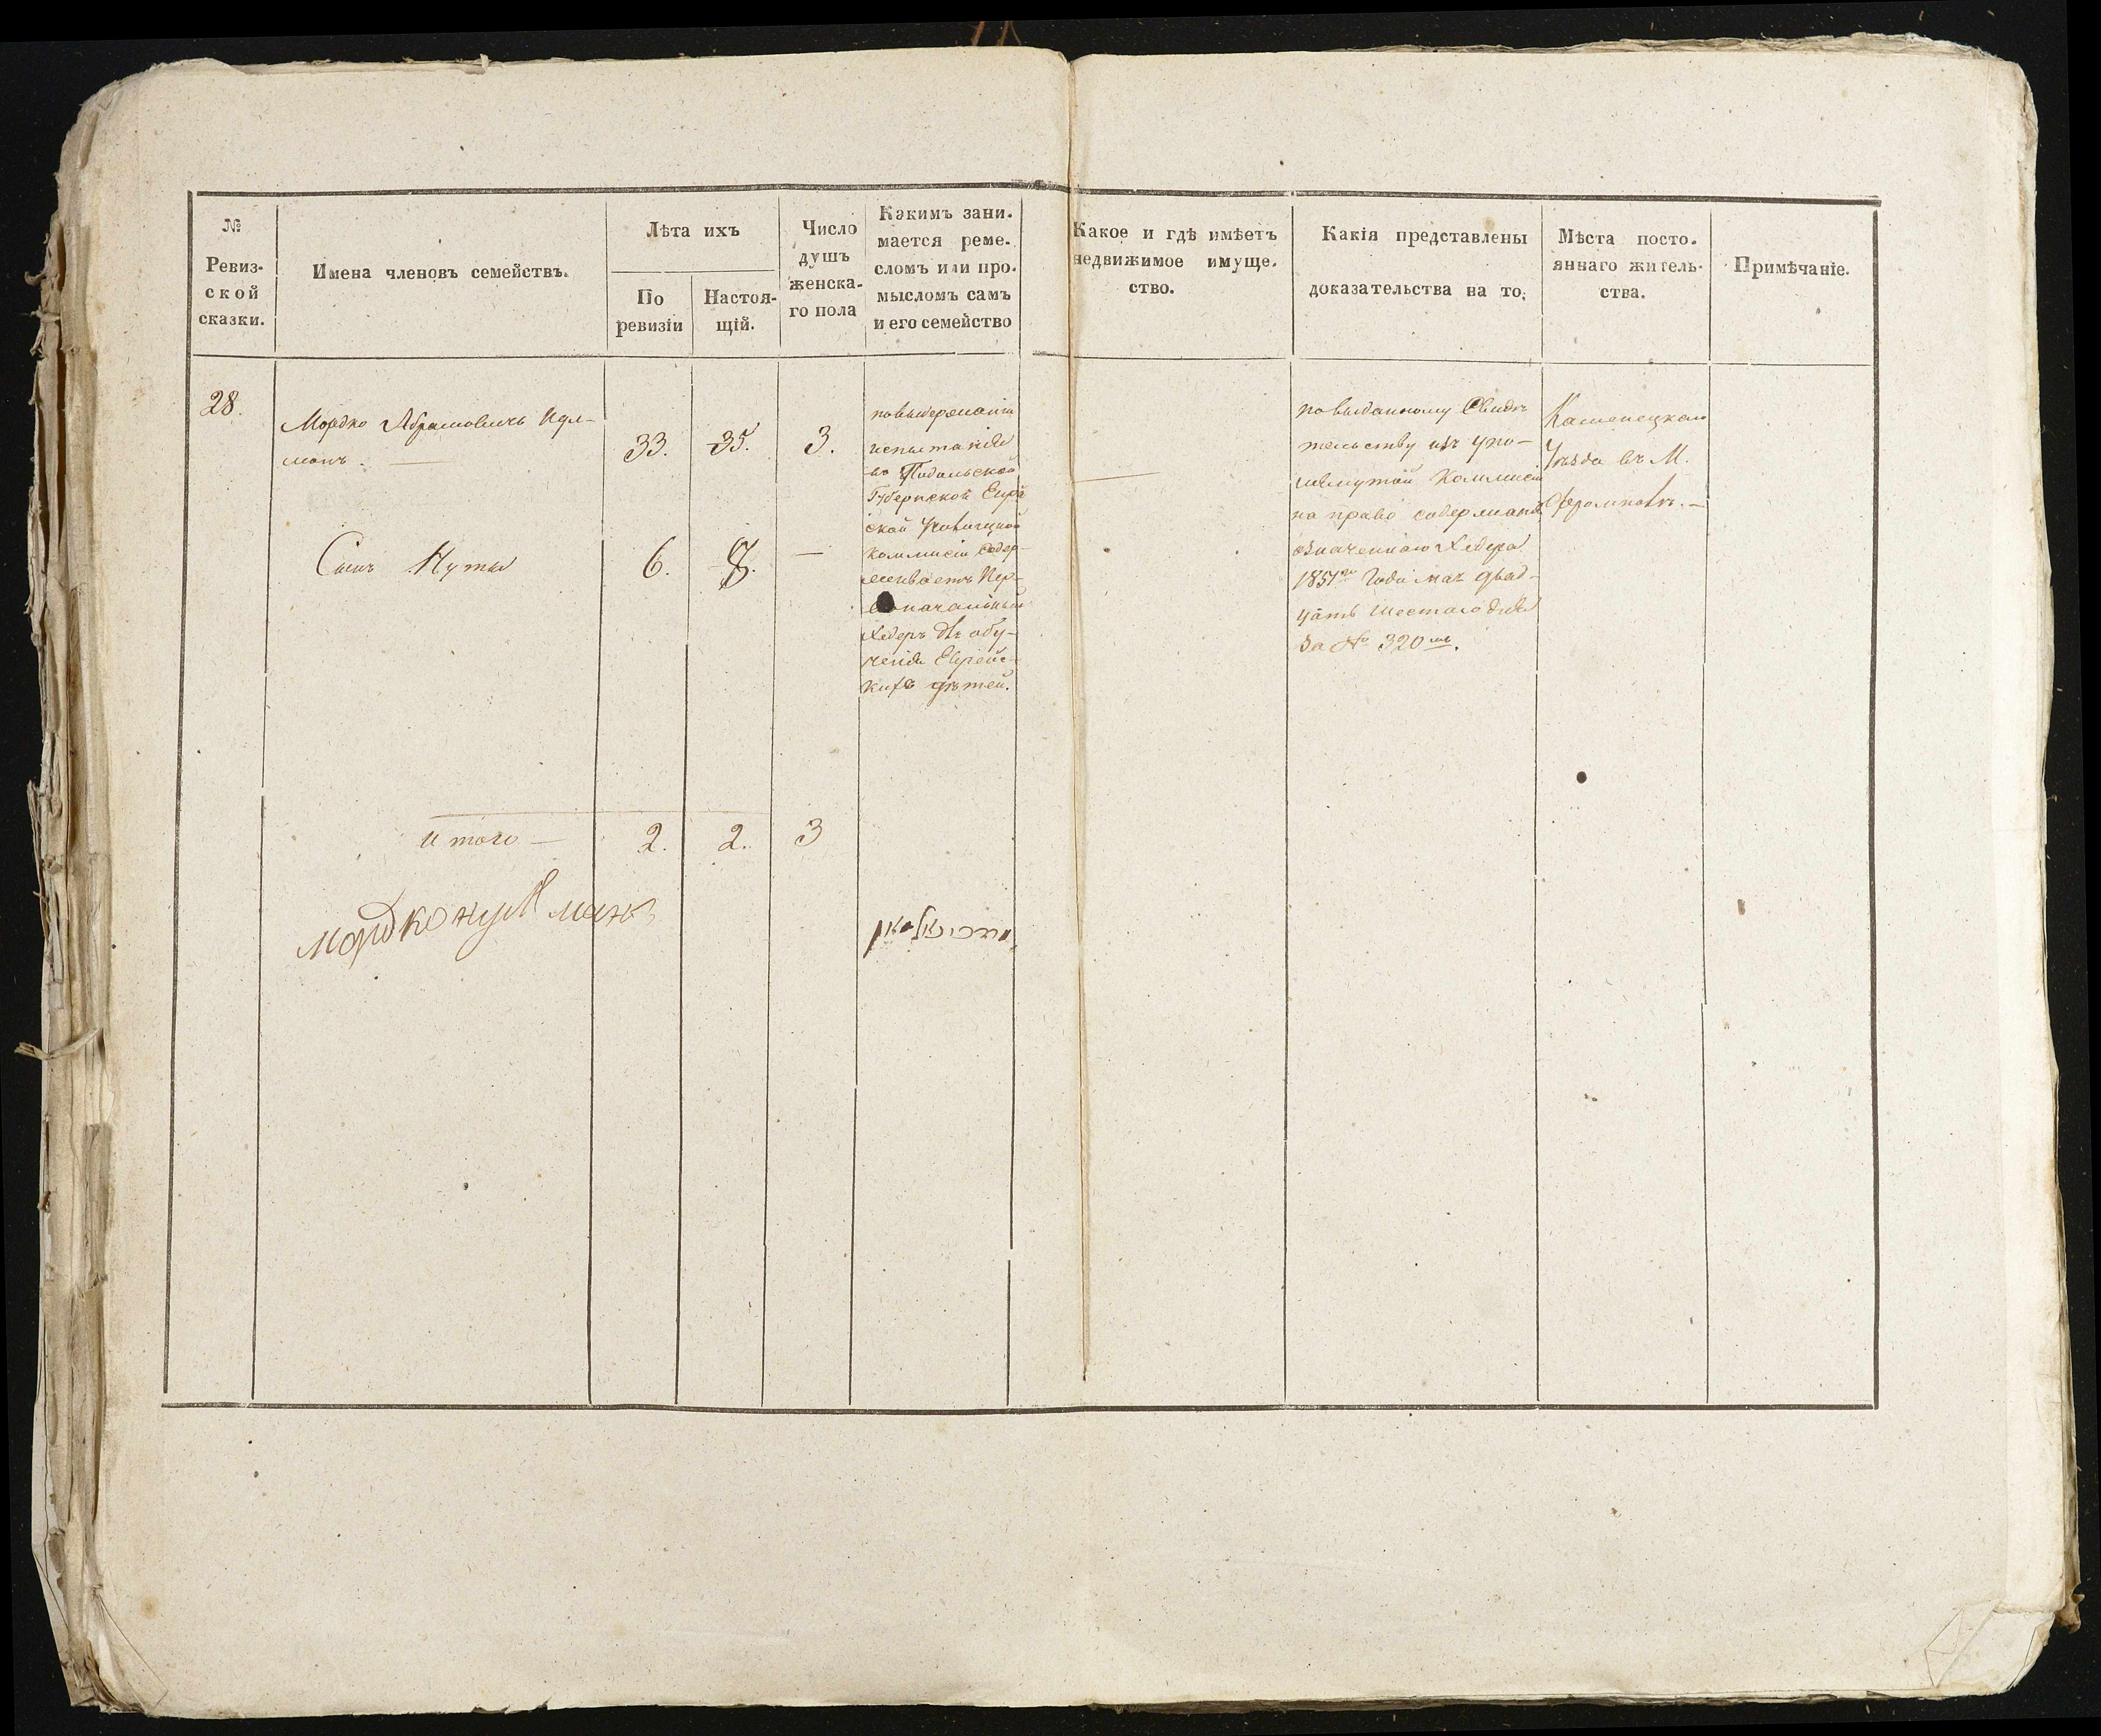 №
Ревиз-
ской
сказки.
Имена членовъ семействъ.
Лѣта ихъ
По
ревизіи
Настоя-
щій.
Число
душъ
женска-
го пола
Какимъ зани-
мается реме-
сломъ или про-
мысломъ самъ
и его семейство
Какое и гдѣ имѣетъ
недвижимое имуще-
ство.
Какія представлены
доказательства на то.
Мѣста посто-
яннаго житель-
ства.
Примѣчаніе.
28.
Мордко Абрамовичъ Нул-
манъ. —
33.
35.
3.
Сынъ Нута
6.
8.
—
по выдержаніи
испытанія
въ Подольской
Губернской Еврей
ской Училищной
Коммисіи содер-
живаетъ Пер-
воначальный
Хедеръ для обу-
ченія Еврейс-
кихъ дѣтей.
—
по выданному Свидѣ
тельству изъ упо-
мянутой Коммисіи
на право содержанія
означеннаго Хедера
1851го Года мая двад-
цать шестаго дня
за № 320мъ.
Каменецкаго
Уѣзда въ М.
Фрамповкѣ. —
Итого —
2.
2.
3
Мордко Нулманъ